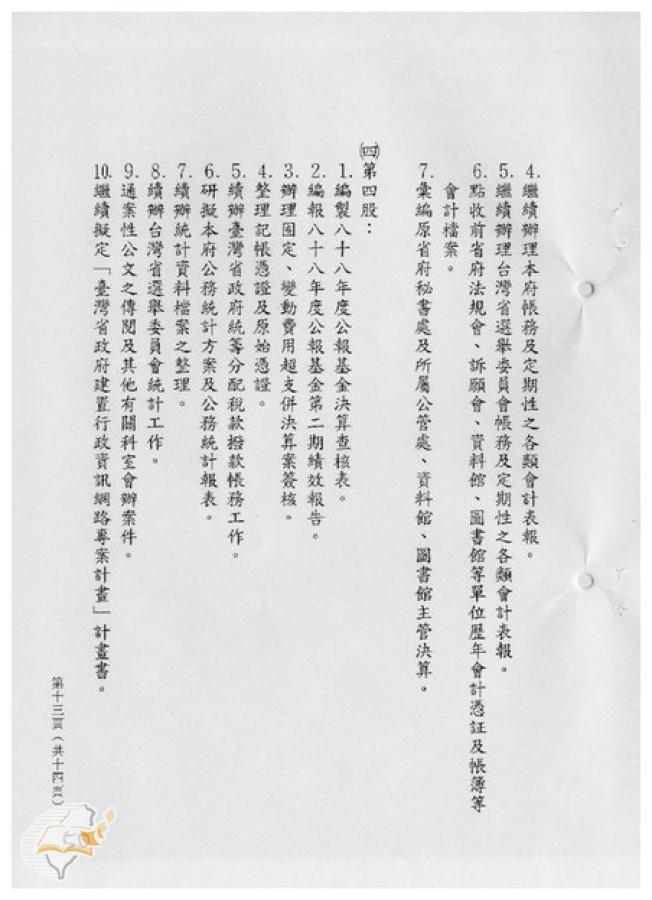 4.繼續辦理本府帳務及定期性之各類會計表報。
5.繼續辦理台灣省選舉委員會帳務及定期性之各類會計表報。
6.點收前省府法規會、訴願會、資料館、圖書館等單位歷年會計憑証及帳簿等
會計檔案。
7.彙編原省府秘書處及所屬公管處、資料館、圖書館主管決算。
㈣第四股：
1.編製八十八年度公報基金決算查核表。
2.編報八十八年度公報基金第二期績效報告。
3.辦理固定、變動費用超支併決算案簽核。
4.整理記帳憑證及原始憑證。
5.續辦臺灣省政府統籌分配稅款撥款帳務工作。
6.研擬本府公務統計方案及公務統計報表。
7.續辦統計資料檔案之整理。
8.續辦台灣省選舉委員會統計工作。
9.通案性公文之傳閱及其他有關科室會辦案件。
10.繼續擬定「臺灣省政府建置行政資訊網路專案計畫」計畫書。
第十三頁（共十四頁）